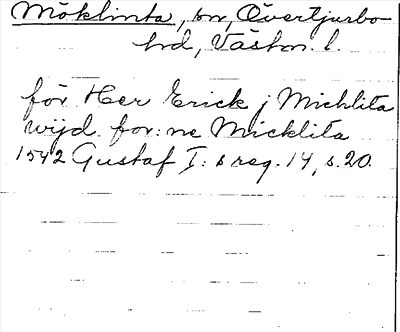 Möklinta, sn, Övertjurbo
hd, Västm. l.
för Her Erick j Michlita
wijd for:ne Micklita
1542 Gustaf I:s reg. 14, s. 20.